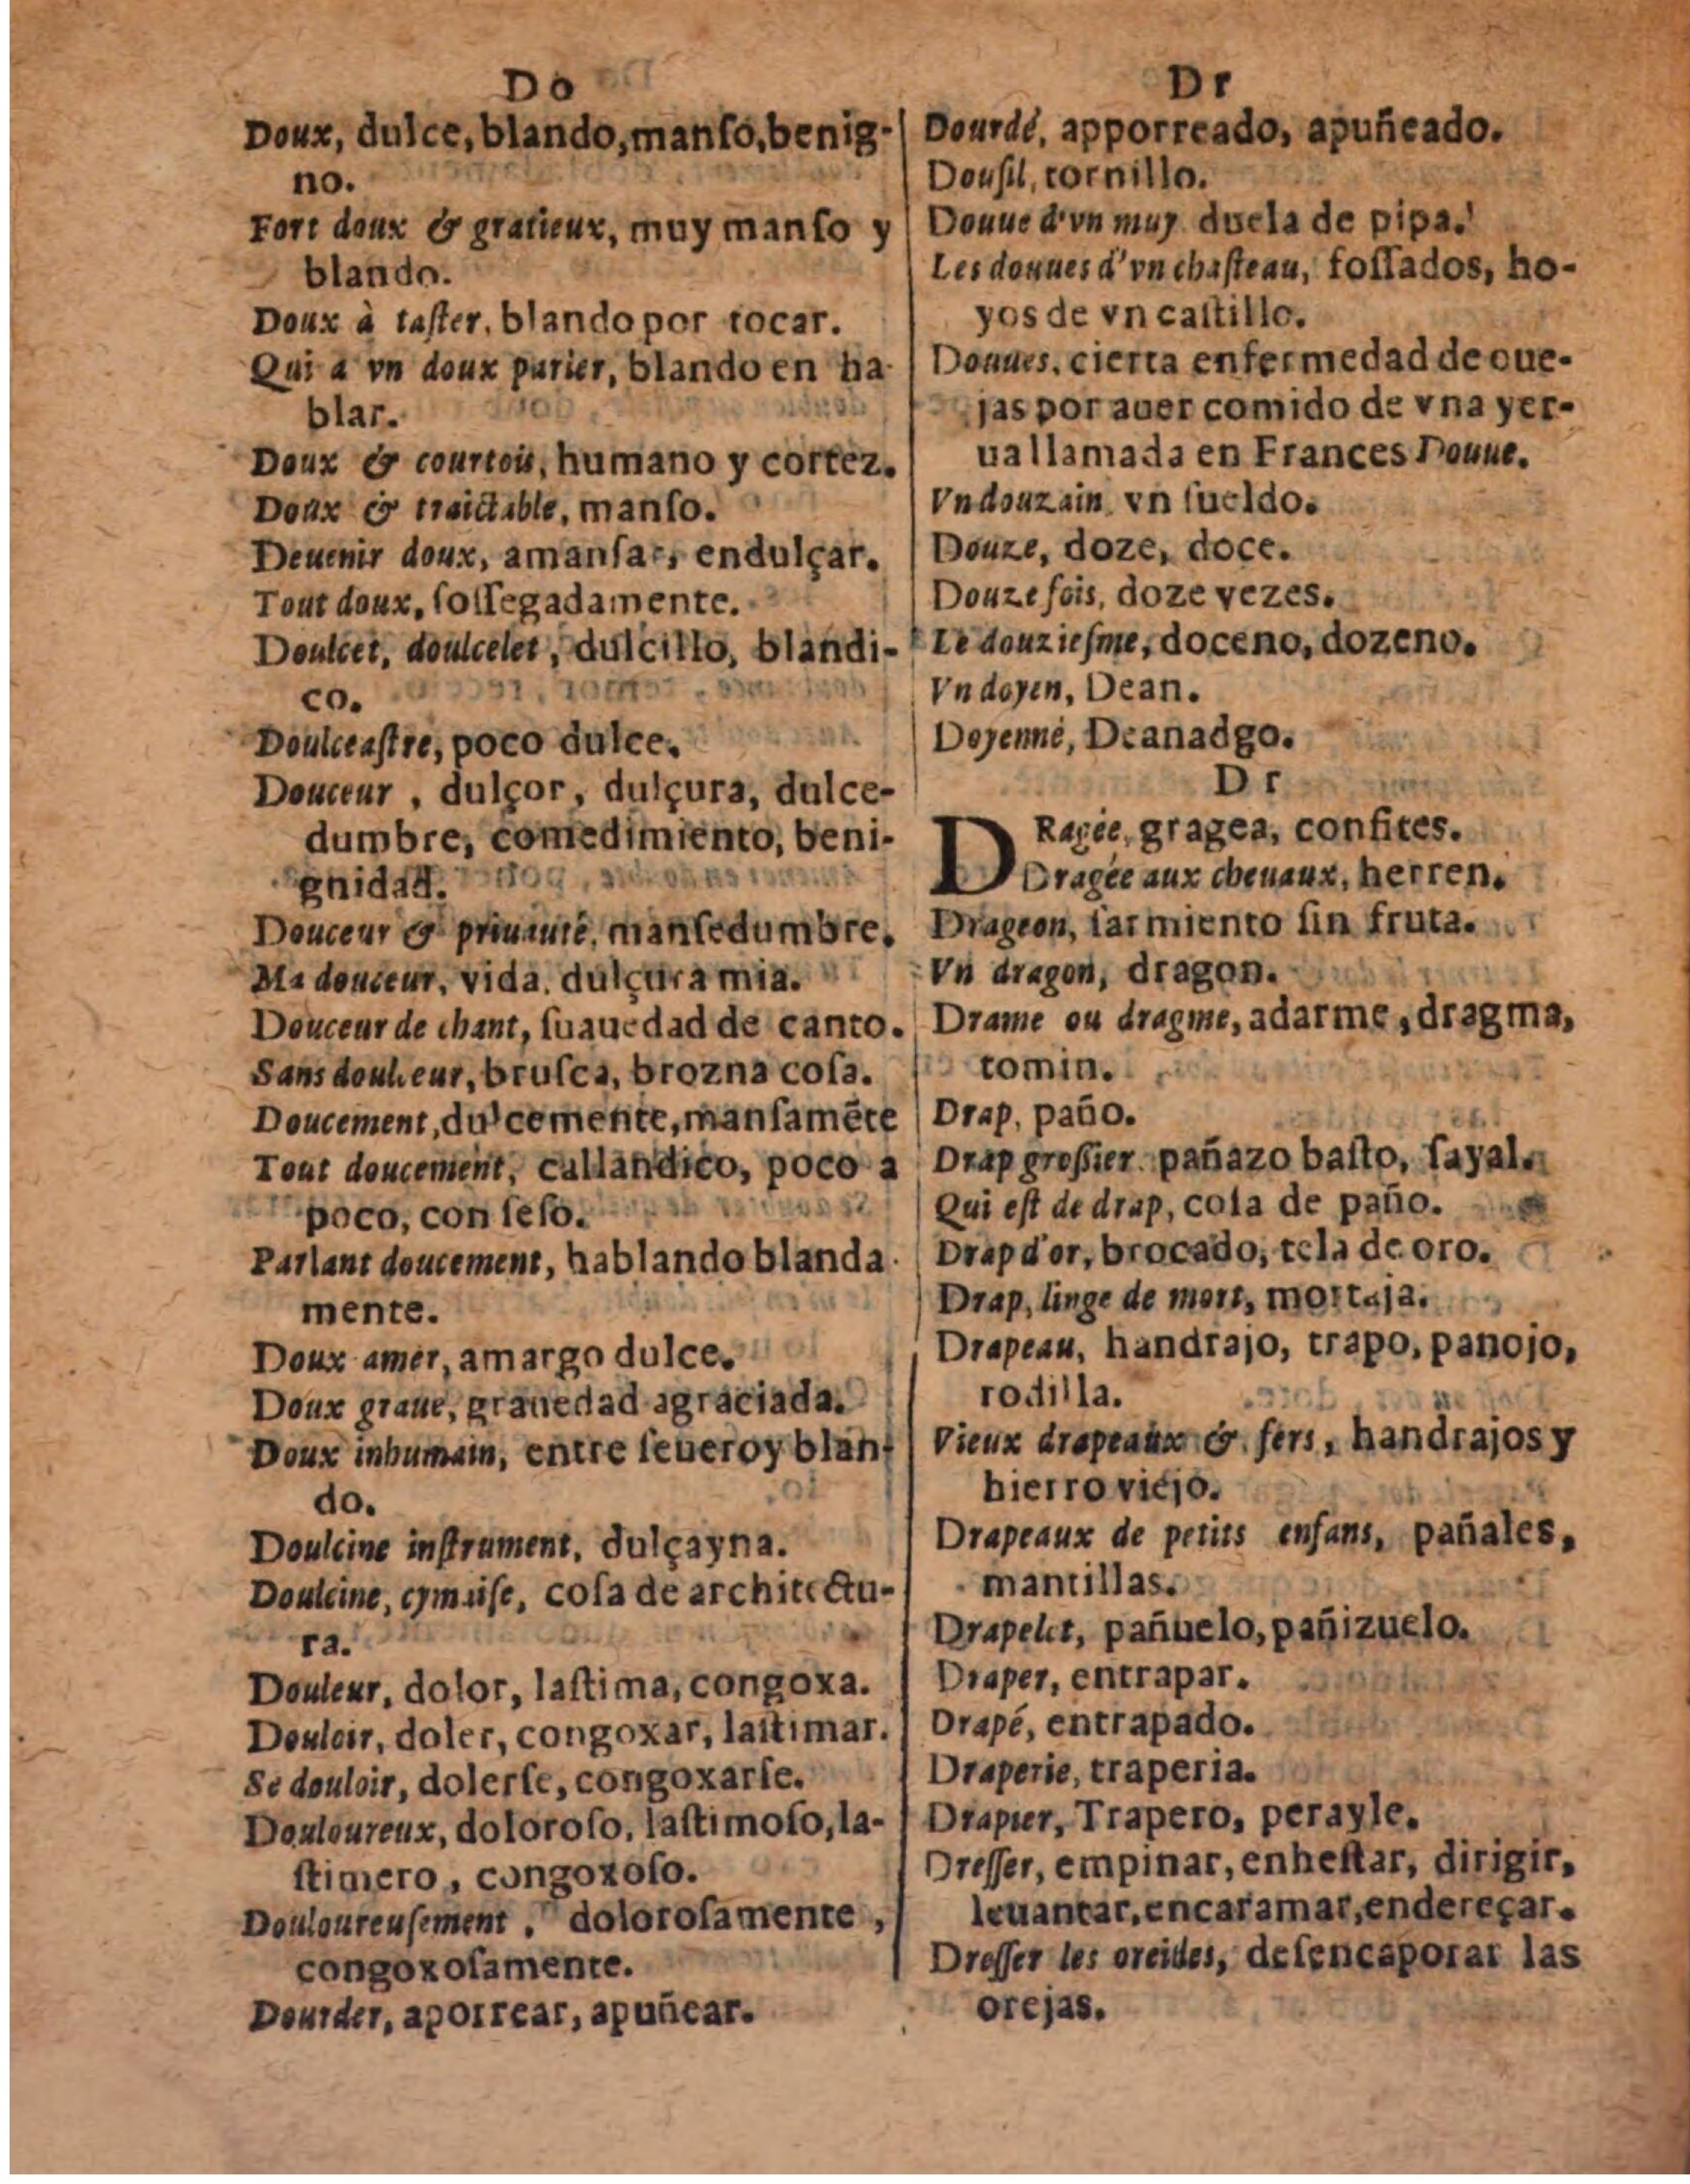 Do
Doux, dulce, blando, manſo, benig-
no.
Fort doux & gratieux, muy manſo y
blando.
Doux à taſter, blando por tocar.
Qui a vn doux parler, blando en ha-
blar.
Doux & courtois, humano y cortez.
Doux & traictable, manſo.
Deuenir doux, amanſar, endulçar.
Tout doux, ſoſſegadamente.
Doulcet, doulcelet, dulcillo, blandi-
co.
Doulceaſtre, poco dulce.
Douceur, dulçor, dulçura, dulce-
dumbre, comedimiento, beni-
gnidad.
Douceur & priuauté, manſedumbre.
Ma douceur, vida, dulçura mia.
Douceur de chant, ſuauedad de canto.
Sans doulceur, bruſca, brozna coſa.
Doucement, dulcemente, manſamẽte
Tout doucement, callandico, poco a
poco, con ſeſo.
Parlant doucement, hablando blanda-
mente.
Doux amer, amargo dulce.
Doux graue, grauedad agraciada.
Doux inhumain, entre ſeuero y blan-
do.
Doulcine inſtrument, dulçayna.
Doulcine, cymaiſe, coſa de architectu-
ra.
Douleur, dolor, laſtima, congoxa.
Douloir, doler, congoxar, laſtimar.
Se douloir, dolerſe, congoxarſe.
Douloureux, doloroſo, laſtimoſo, la-
ſtimero, congoxoſo.
Douloureuſement, doloroſamente,
congoxoſamente.
Dourder, aporrear, apuñear.
Dr
Dourdé, apporreado, apuñeado.
Douſil, tornillo.
Douue d'vn muy duela de pipa.
Les douues d'vn chaſteau, foſſados, ho-
yos de vn caſtillo.
Douues, cierta enfermedad de oue-
jas por auer comido de vna yer-
ua llamada en Frances Douue.
Vn douzain, vn ſueldo.
Douze, doze, doce.
Douze fois, doze vezes.
Le douzieſme, doceno, dozeno.
Vn doyen, Dean.
Doyenné, Deanadgo.
Dr
DRagée, gragea, confites.
Dragée aux cheuaux, herren.
Drageon, ſarmiento ſin fruta.
Vn dragon, dragon.
Drame ou dragme, adarme, dragma,
tomin.
Drap, paño.
Drap groſſier, pañazo baſto, ſayal.
Qui eſt de drap, coſa de paño.
Drap d'or, brocado, tela de oro.
Drap, linge de mort, mortaja.
Drapeau, handrajo, trapo, panojo,
rodilla.
Vieux drapeaux & fers, handrajos y
hierro viejo.
Drapeaux de petits enfans, pañales,
mantillas.
Drapelet, pañuelo, pañizuelo.
Draper, entrapar.
Drapé, entrapado.
Draperie, traperia.
Drapier, Trapero, perayle.
Dreſſer, empinar, enheſtar, dirigir,
leuantar, encaramar, endereçar.
Dreſſer les oreilles, deſencaporar las
orejas.